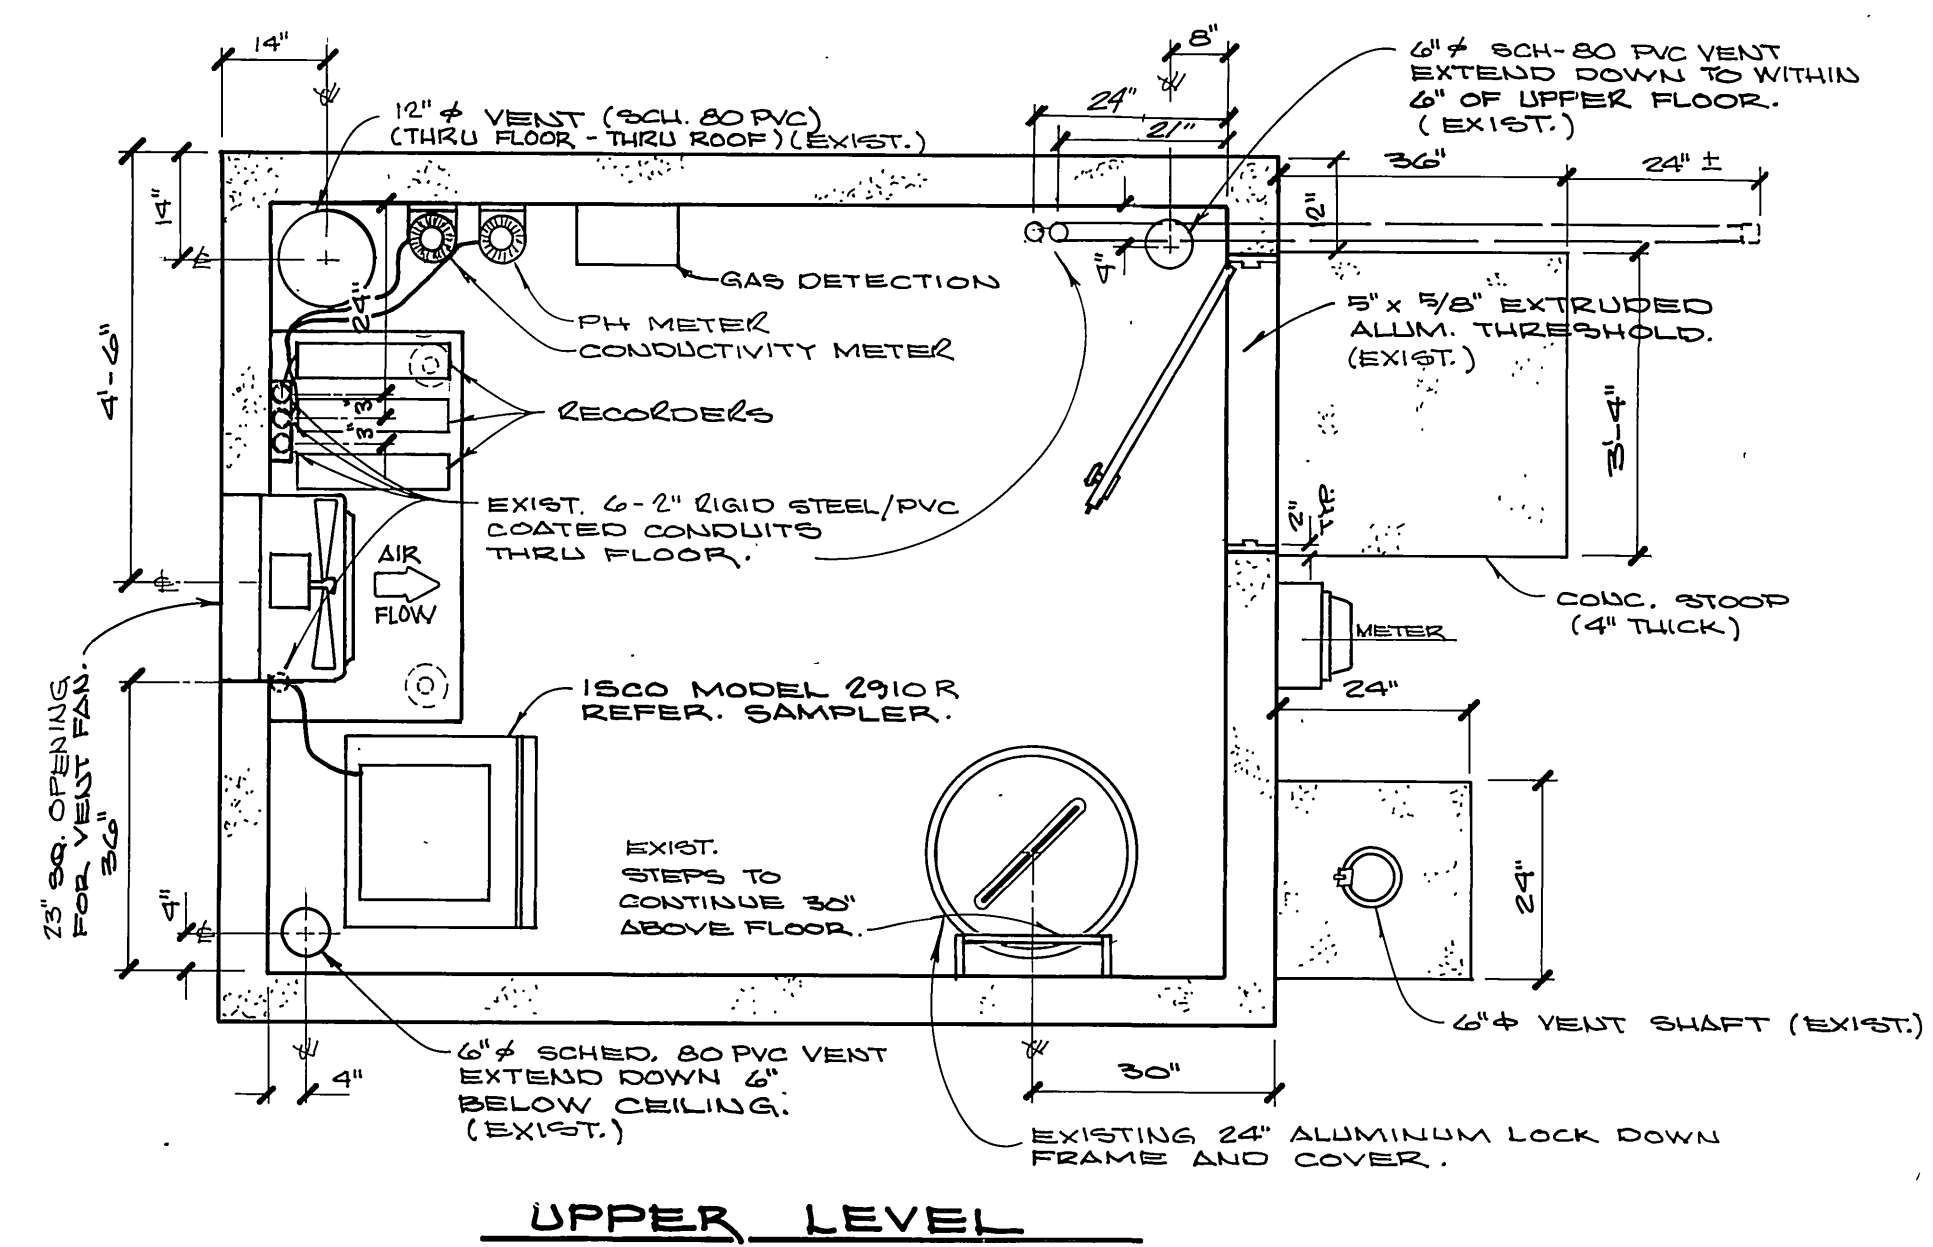 14"
8"
6"φ SCH-80 PVC VENT
EXTEND DOWN TO WITHIN
6" OF UPPER FLOOR.
(EXIST.)
12"φ VENT (SCH. 80 PVC)
(THRU FLOOR - THRU ROOF) (EXIST.)
24"
21"
36"
24" ±
14"
12"
4"
24"
GAS DETECTION
PH METER
CONDUCTIVITY METER
5" x 5/8" EXTRUDED
ALUM. THRESHOLD.
(EXIST.)
4'-6"
3"
3"
RECORDERS
3'-4"
EXIST. 6-2" RIGID STEEL/PVC
COATED CONDUITS
THRU FLOOR.
2"
TYP.
AIR
FLOW
CONC. STOOP
(4" THICK)
METER
23" SQ. OPENING
FOR VENT FAN.
ISCO MODEL 2910R
REFER. SAMPLER.
24"
36"
4"
EXIST.
STEPS TO
CONTINUE 30"
ABOVE FLOOR.
24"
6"φ VENT SHAFT (EXIST.)
4"
6"φ SCHED. 80 PVC VENT
EXTEND DOWN 6"
BELOW CEILING.
(EXIST.)
30"
EXISTING 24" ALUMINUM LOCK DOWN
FRAME AND COVER.
UPPER LEVEL